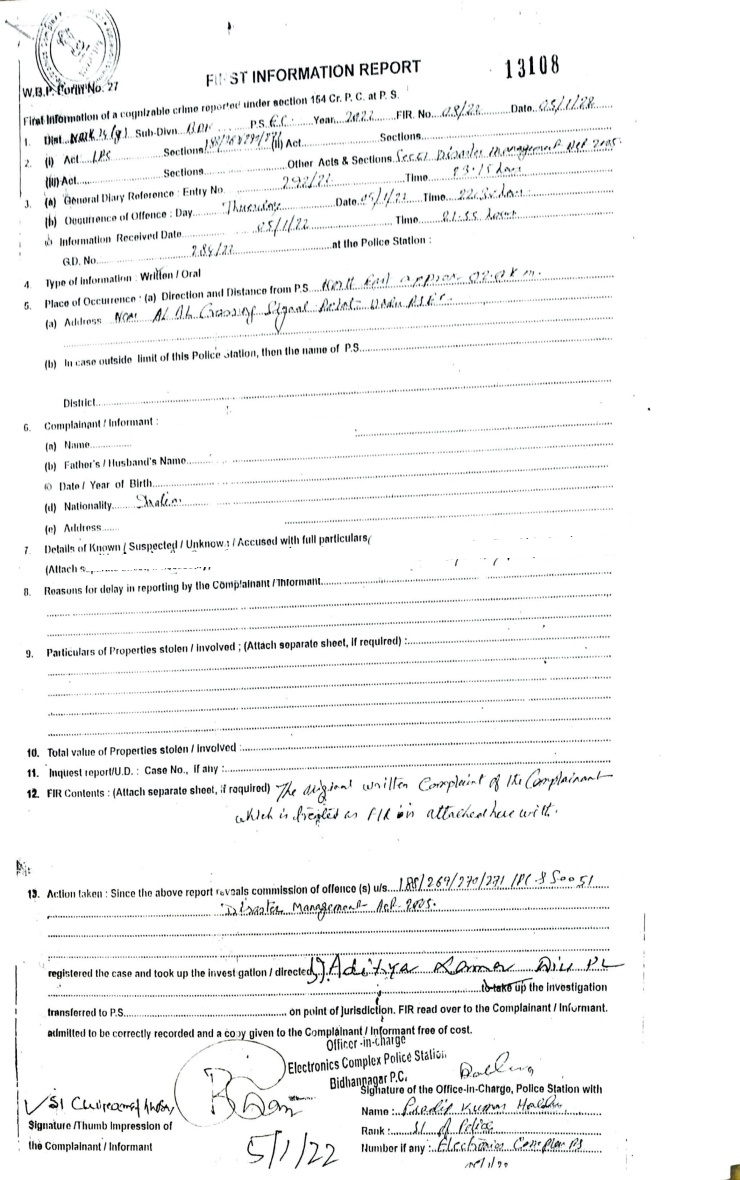 13108
FIRST INFORMATION REPORT
W.B.P. Form No. 27
First Information of a cognizable crime reported under section 154 Cr. P. C. at P. S.
1. Dist. Sub-Divn. BDN P.S. E.C. Year 2022 FIR. No. 08/22 Date 05/1/22
2. (i) Act IPC Sections 188/269/270/271 (ii) Act Sections
(iii) Act Sections Other Acts & Sections Sec 51 Disaster Management Act 2005.
3. (a) General Diary Reference : Entry No. 292/22 Time 23.15 hrs
(b) Occurrence of Offence : Day Date 05/1/22 Time
Information Received Date 05/1/22 Time 21.55 hours
G.D. No. 284/22 at the Police Station :
4. Type of Information : Written / Oral
5. Place of Occurrence : (a) Direction and Distance from P.S. North East approx 02.0 K.m.
(a) Address Near Crossing Signal Point Under PS EC.
(b) In case outside limit of this Police Station, then the name of P.S.
District
6. Complainant / Informant :
(a) Name
(b) Father's / Husband's Name
Date / Year of Birth
(d) Nationality Indian
(e) Address
7. Details of Known / Suspected / Unknown / Accused with full particulars
(Attach
8. Reasons for delay in reporting by the Complainant / Informant
9. Particulars of Properties stolen / Involved ; (Attach separate sheet, if required) :
10. Total value of Properties stolen / Involved :
11. Inquest report/U.D. : Case No., if any :
12. FIR Contents : (Attach separate sheet, if required) The original written Complaint of the Complainant
which is treated as FIR is attached here with.
13. Action taken : Since the above report reveals commission of offence (s) u/s 188/269/270/271 IPC
Disaster Management Act-2005.
registered the case and took up the investigation / directed SI Aditya
to take up the investigation
transferred to P.S. on point of jurisdiction. FIR read over to the Complainant / Informant.
admitted to be correctly recorded and a copy given to the Complainant / Informant free of cost.
Officer-in-charge
Electronics Complex Police Station
Bidhannagar P.C.
Signature of the Office-in-Charge, Police Station with
SI
Name : Kumar
Signature /Thumb Impression of
Rank : SI of Police
the Complainant / Informant
5/1/22
Number if any : Electronics Complex PS